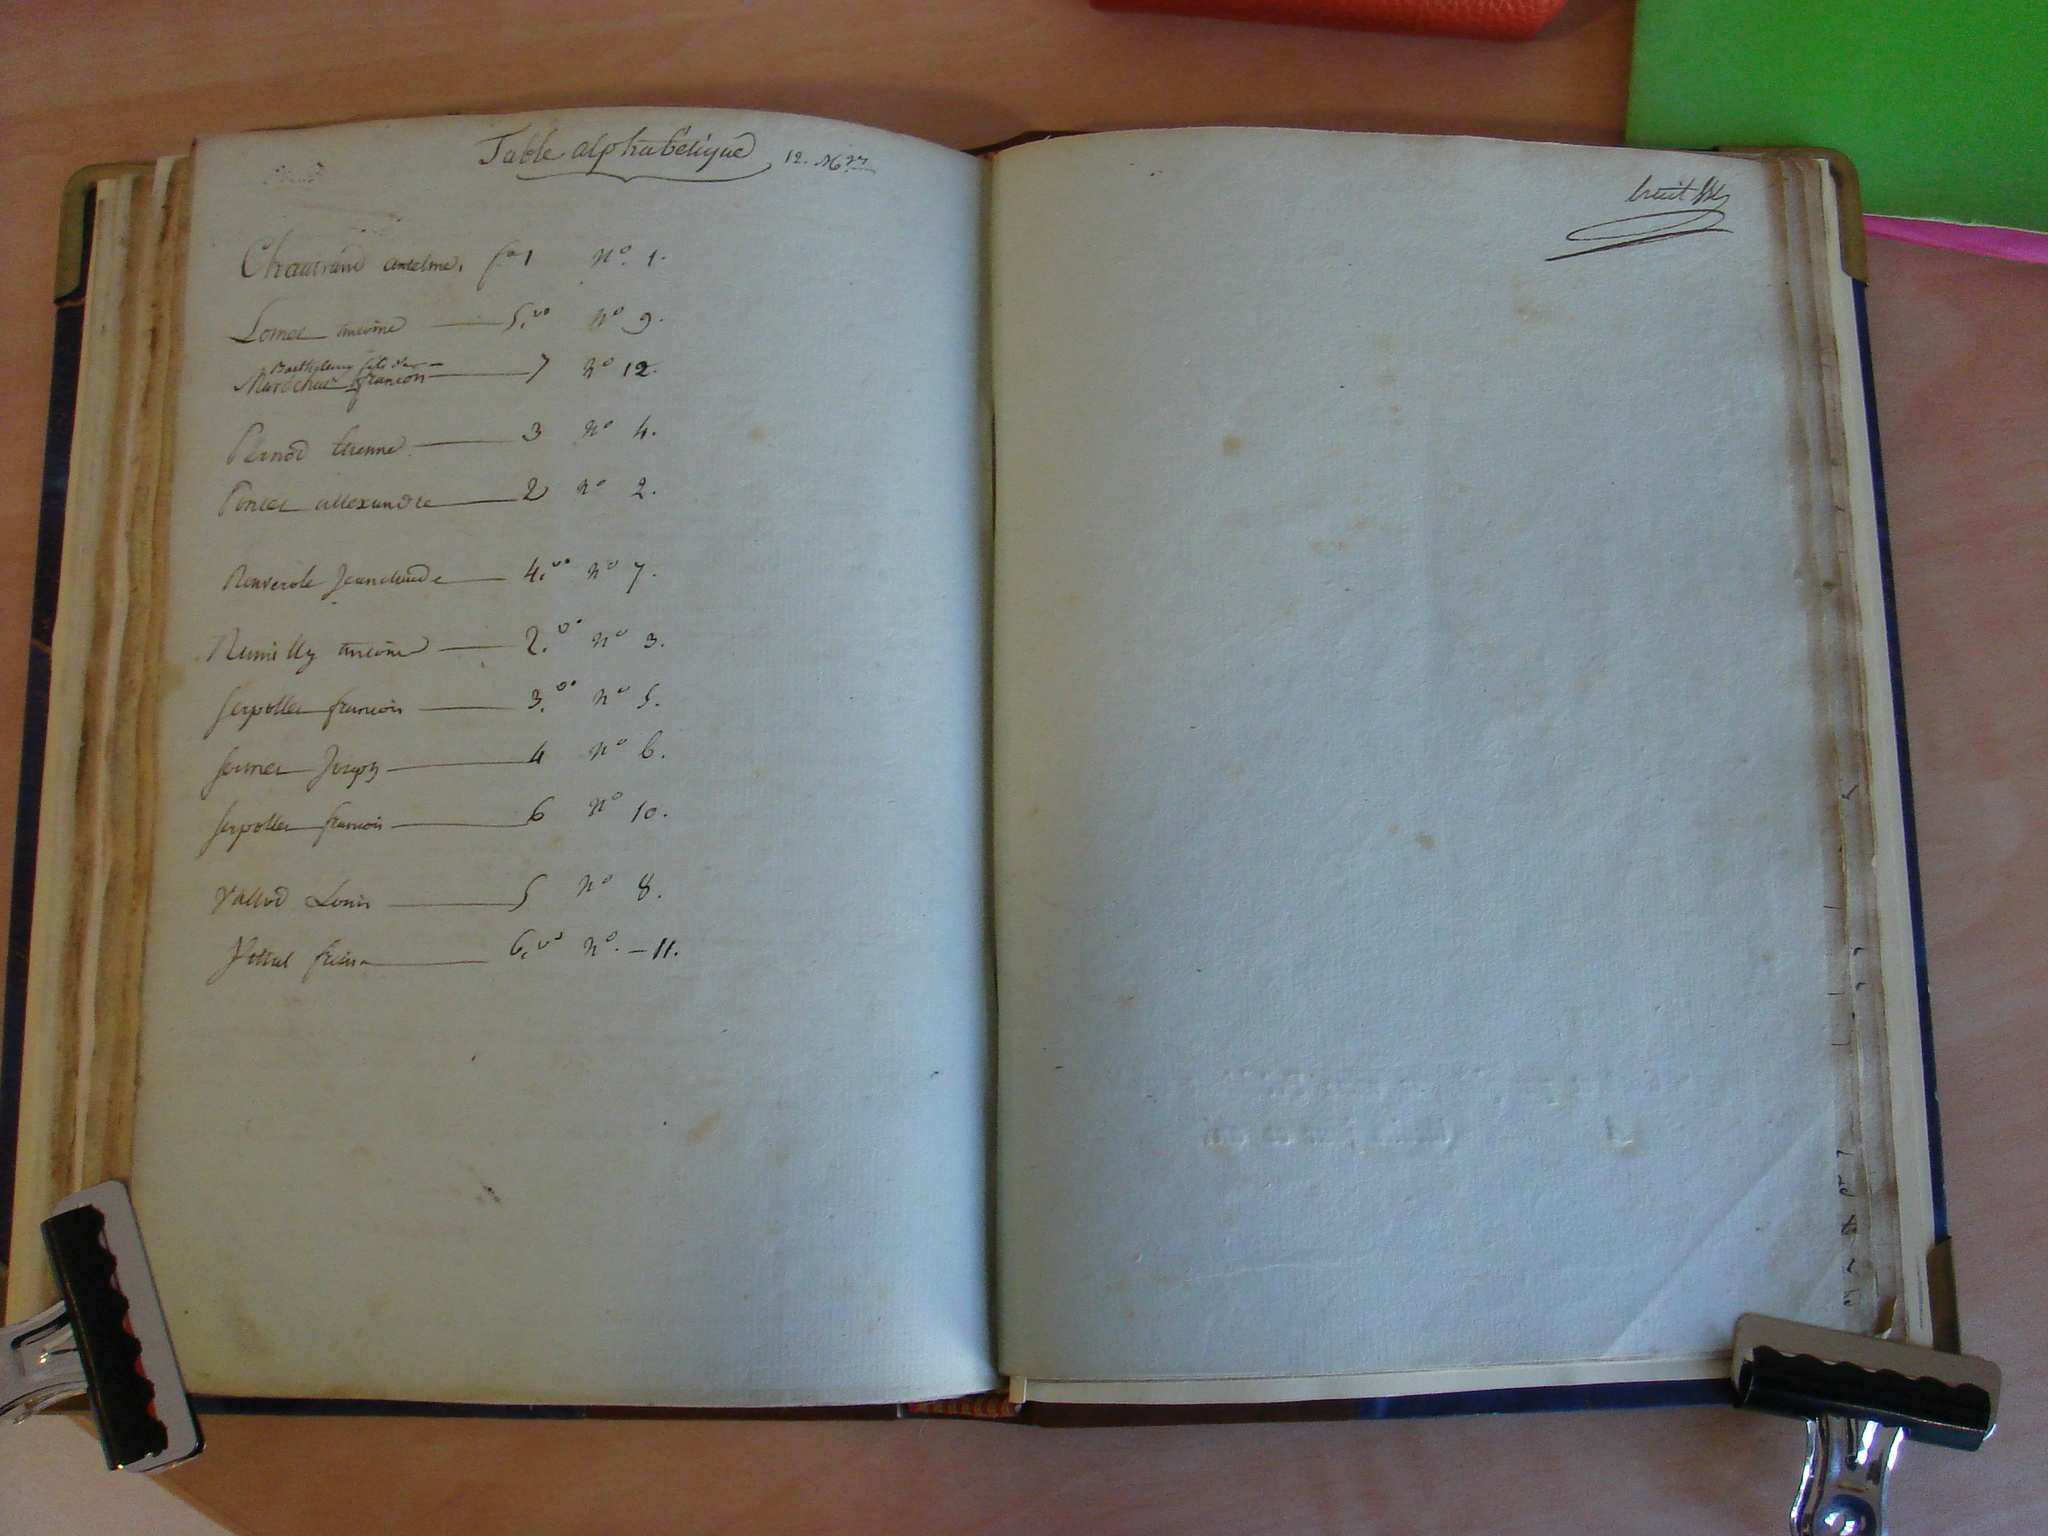 Table alphabétique 12. Mrs
Chautrand anselme. fo 1 no. 1.
Lomet antoine 5. vo no 9.
Barthelemy fils de
Marechat francois 7 no 12.
Pernod Etienne 3 no 4.
Poncet allexandre 2 no 2.
Renverole Jeanclaude 4. vo no 7.
Rumilly antoine 2. vo no 3.
Serpollet francois 3. vo no 5.
Joseph 4 no 6.
Serpollet francois 6 no 10.
Vallod Louis 5 no 8.
6. vo no. 11.
huit